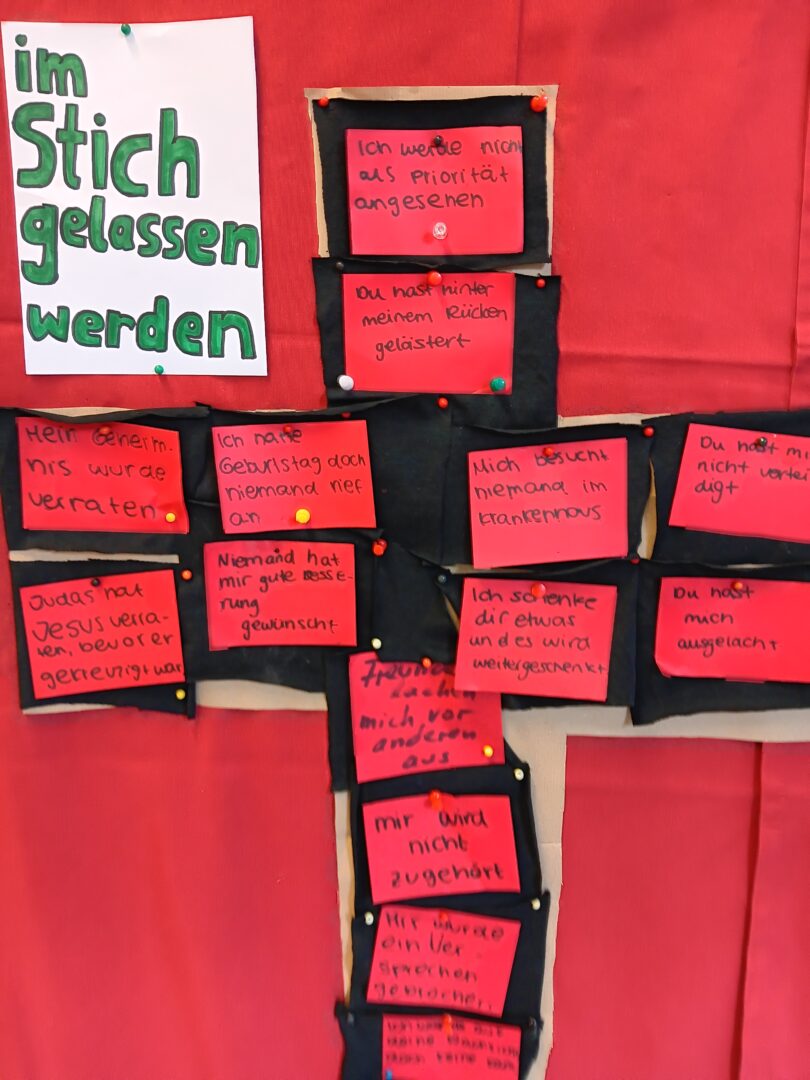 im
Stich
gelassen
werden
Ich werde nicht
als priorität
angesehen
Du hast hinter
meinem Rücken
gelästert
Mein Geheim-
nis wurde
verraten
Ich hatte
Geburtstag doch
niemand rief
an
Mich besucht
niemand im
Krankenhaus
Du hast mi
nicht vertei
digt
Judas hat
Jesus verra-
ten, bevor er
gekreuzigt war
Niemand hat
mir gute Besse-
rung
gewünscht
Ich schenke
dir etwas
und es wird
weitergeschenkt
Du hast
mich
ausgelacht
Freunde
lachen
mich vor
anderen
aus
mir wird
nicht
zugehört
Mir wurde
ein Ver
sprechen
gebrochen.